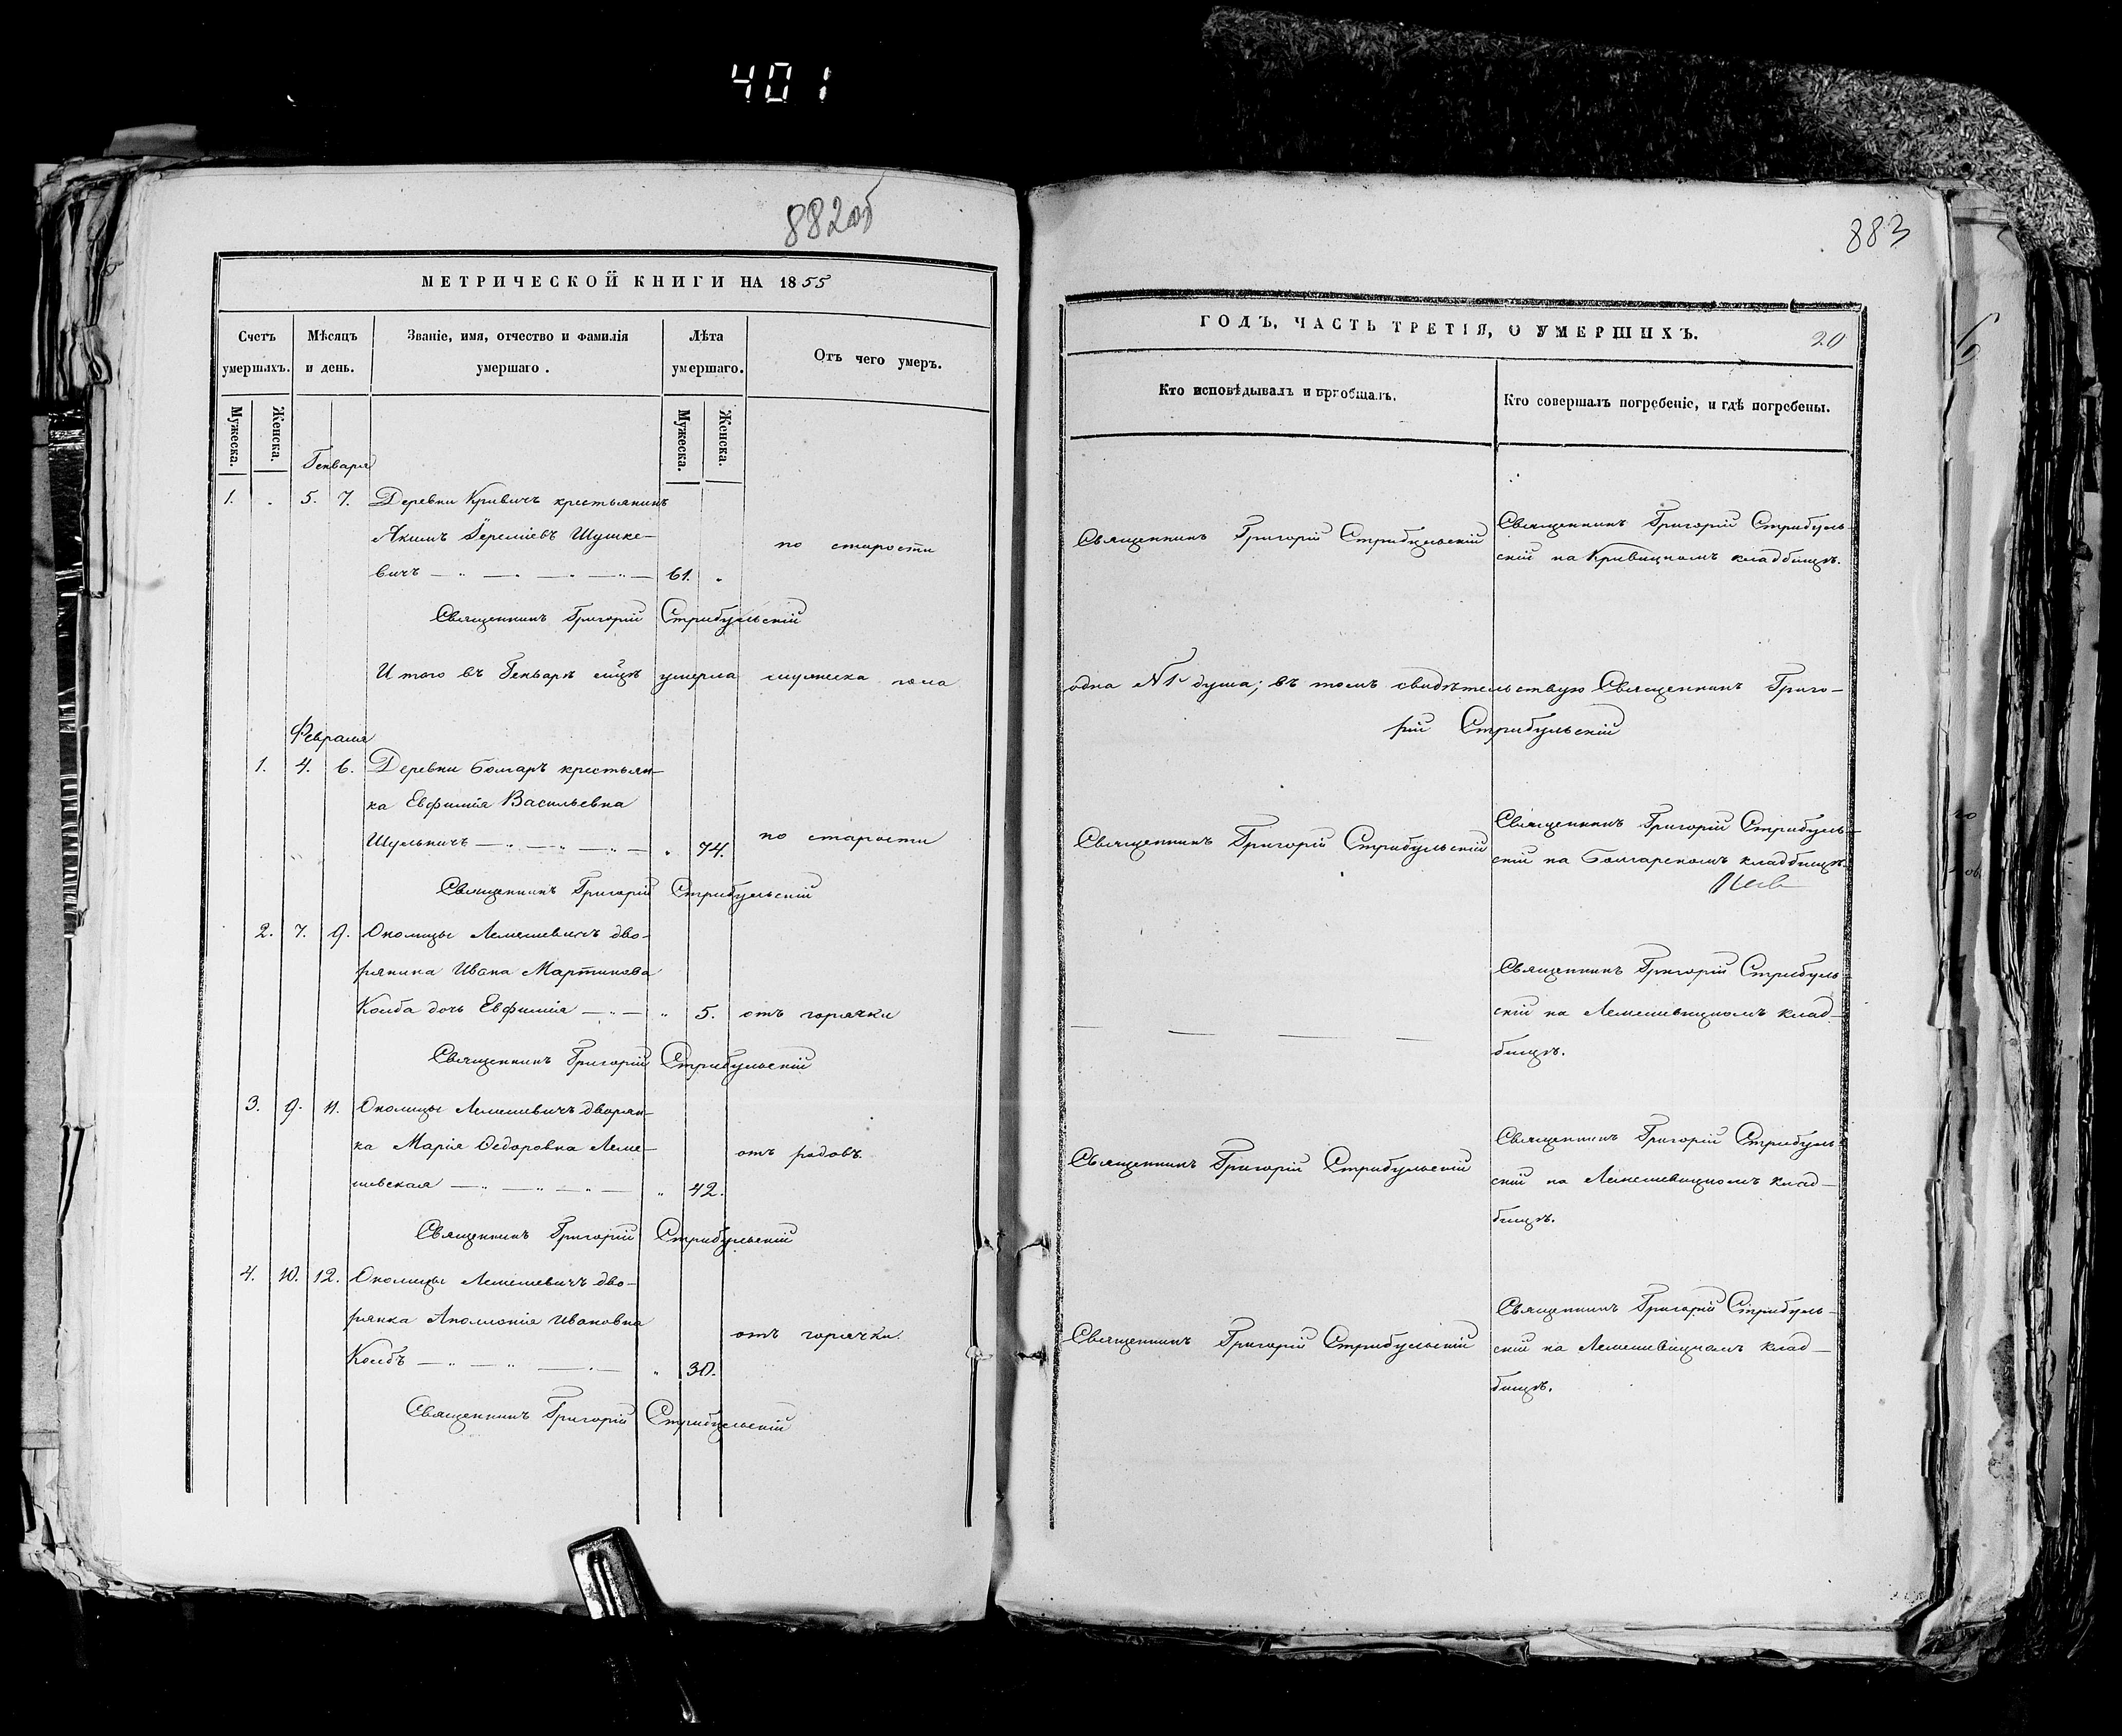 401
882об
МЕТРИЧЕСКОЙ КНИГИ НА 1855
Счетъ умершихъ.
Мѣсяцъ и день.
Званіе, имя, отчество и фамилія умершаго.
Лѣта умершаго.
Отъ чего умеръ.
Мужеска. Женска.
Мужеска. Женска.
Генваря
1. 5. 7. Деревни Кривичъ крестьянинъ
Акимъ Шушке-
вичъ 61. по старости
Священникъ Григорій Стрибульскій
И того въ Генварѣ мцѣ умерла мужеска пола
Февраля
1. 4. 6. Деревни Болгаръ крестьян-
ка Евфимія Васильевна
Шульничъ 74. по старости
Священникъ Григорій Стрибульскій
2. 7. 9. Околицы Лемешевичъ дво-
рянина Ивана Мартинова
Колба дочь Евфимія 5. отъ горячки
Священникъ Григорій Стрибульскій
3. 9. 11. Околицы Лемешевичъ дворян-
ка Марія Ѳедоровна Леме-
шевская 42. отъ родовъ.
Священникъ Григорій Стрибульскій
4. 10. 12. Околицы Лемешевичъ дво-
рянка Аполлонія Ивановна
Колбъ 30. отъ горячки.
Священникъ Григорій Стрибульскій
883
ГОДЪ, ЧАСТЬ ТРЕТІЯ, О УМЕРШИХЪ.
20
Кто исповѣдывалъ и пріобщалъ.
Кто совершалъ погребеніе, и гдѣ погребены.
Священникъ Григорій Стрибульскій
Священникъ Григорій Стрибуль-
скій на Кривицкомъ кладбищѣ.
одна №1 душа; въ томъ свидѣтельствую Священникъ Григо-
рій Стрибульскій
Священникъ Григорій Стрибульскій
Священникъ Григорій Стрибуль-
скій на Болгарскомъ кладбищѣ.
Священникъ Григорій Стрибуль-
скій на Лемешевицкомъ клад-
бищѣ.
Священникъ Григорій Стрибульскій
Священникъ Григорій Стрибуль-
скій на Лемешевицкомъ клад-
бищѣ.
Священникъ Григорій Стрибульскій
Священникъ Григорій Стрибуль-
скій на Лемешевицкомъ клад-
бищѣ.